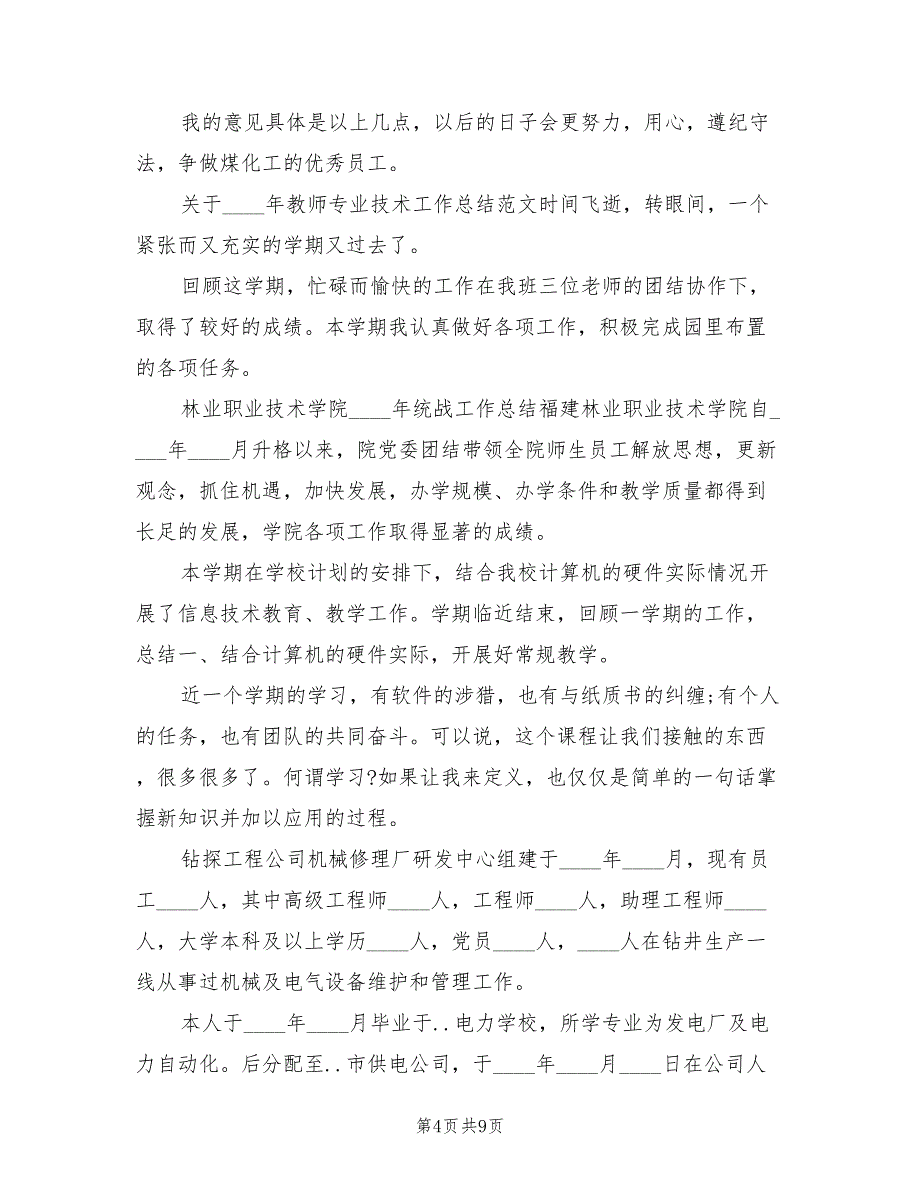 我的意见具体是以上几点，以后的日子会更努力，用心，遵纪守
法，争做煤化工的优秀员工。
关于____年教师专业技术工作总结范文时间飞逝，转眼间，一个
紧张而又充实的学期又过去了。
回顾这学期，忙碌而愉快的工作在我班三位老师的团结协作下，
取得了较好的成绩。本学期我认真做好各项工作，积极完成园里布置
的各项任务。
林业职业技术学院____年统战工作总结福建林业职业技术学院自_
___年____月升格以来，院党委团结带领全院师生员工解放思想，更新
观念，抓住机遇，加快发展，办学规模、办学条件和教学质量都得到
长足的发展，学院各项工作取得显著的成绩。
本学期在学校计划的安排下，结合我校计算机的硬件实际情况开
展了信息技术教育、教学工作。学期临近结束，回顾一学期的工作，
总结一、结合计算机的硬件实际，开展好常规教学。
近一个学期的学习，有软件的涉猎，也有与纸质书的纠缠;有个人
的任务，也有团队的共同奋斗。可以说，这个课程让我们接触的东西
，很多很多了。何谓学习?如果让我来定义，也仅仅是简单的一句话掌
握新知识并加以应用的过程。
钻探工程公司机械修理厂研发中心组建于____年____月，现有员
工____人，其中高级工程师____人，工程师____人，助理工程师____
人，大学本科及以上学历____人，党员____人，____人在钻井生产一
线从事过机械及电气设备维护和管理工作。
本人于____年____月毕业于..电力学校，所学专业为发电厂及电
力自动化。后分配至..市供电公司，于____年____月____日在公司人
第4页 共9页